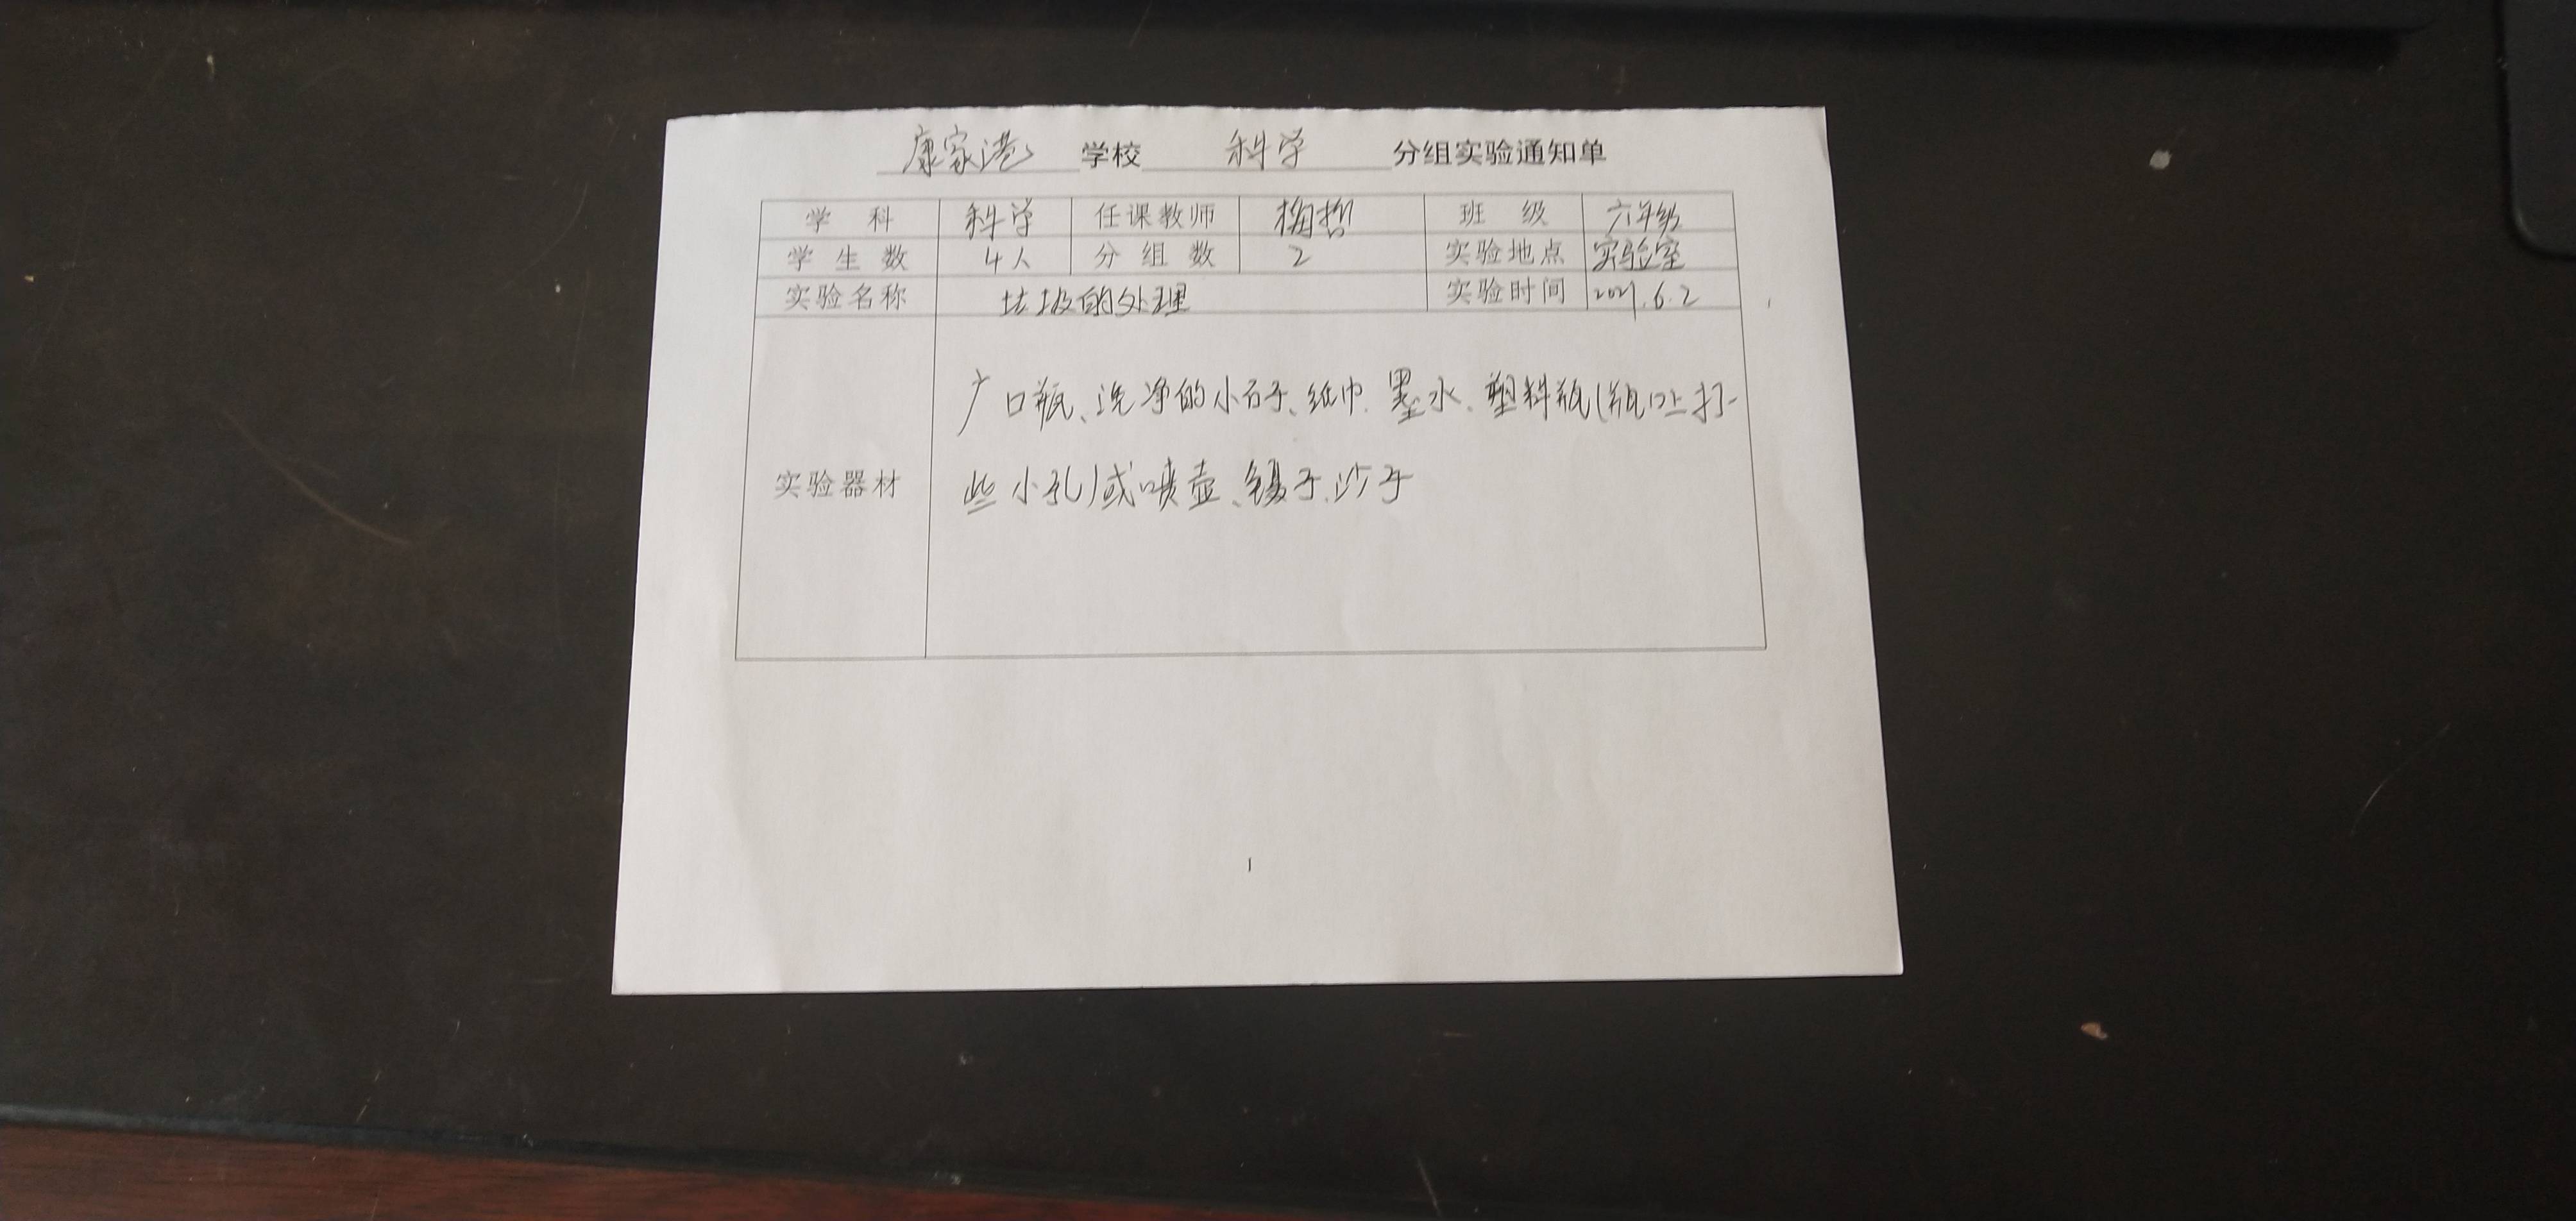 康家港 学校 科学 分组实验通知单
学 科 科学 任课教师 梅哲 班 级 六年级
学生数 4人 分组数 2 实验地点 实验室
实验名称 垃圾的处理 实验时间 2021.6.2
广口瓶、洗净的小石子、纸巾、墨水、塑料瓶(瓶口上打一
实验器材 些小孔)或喷壶、镊子、沙子
1